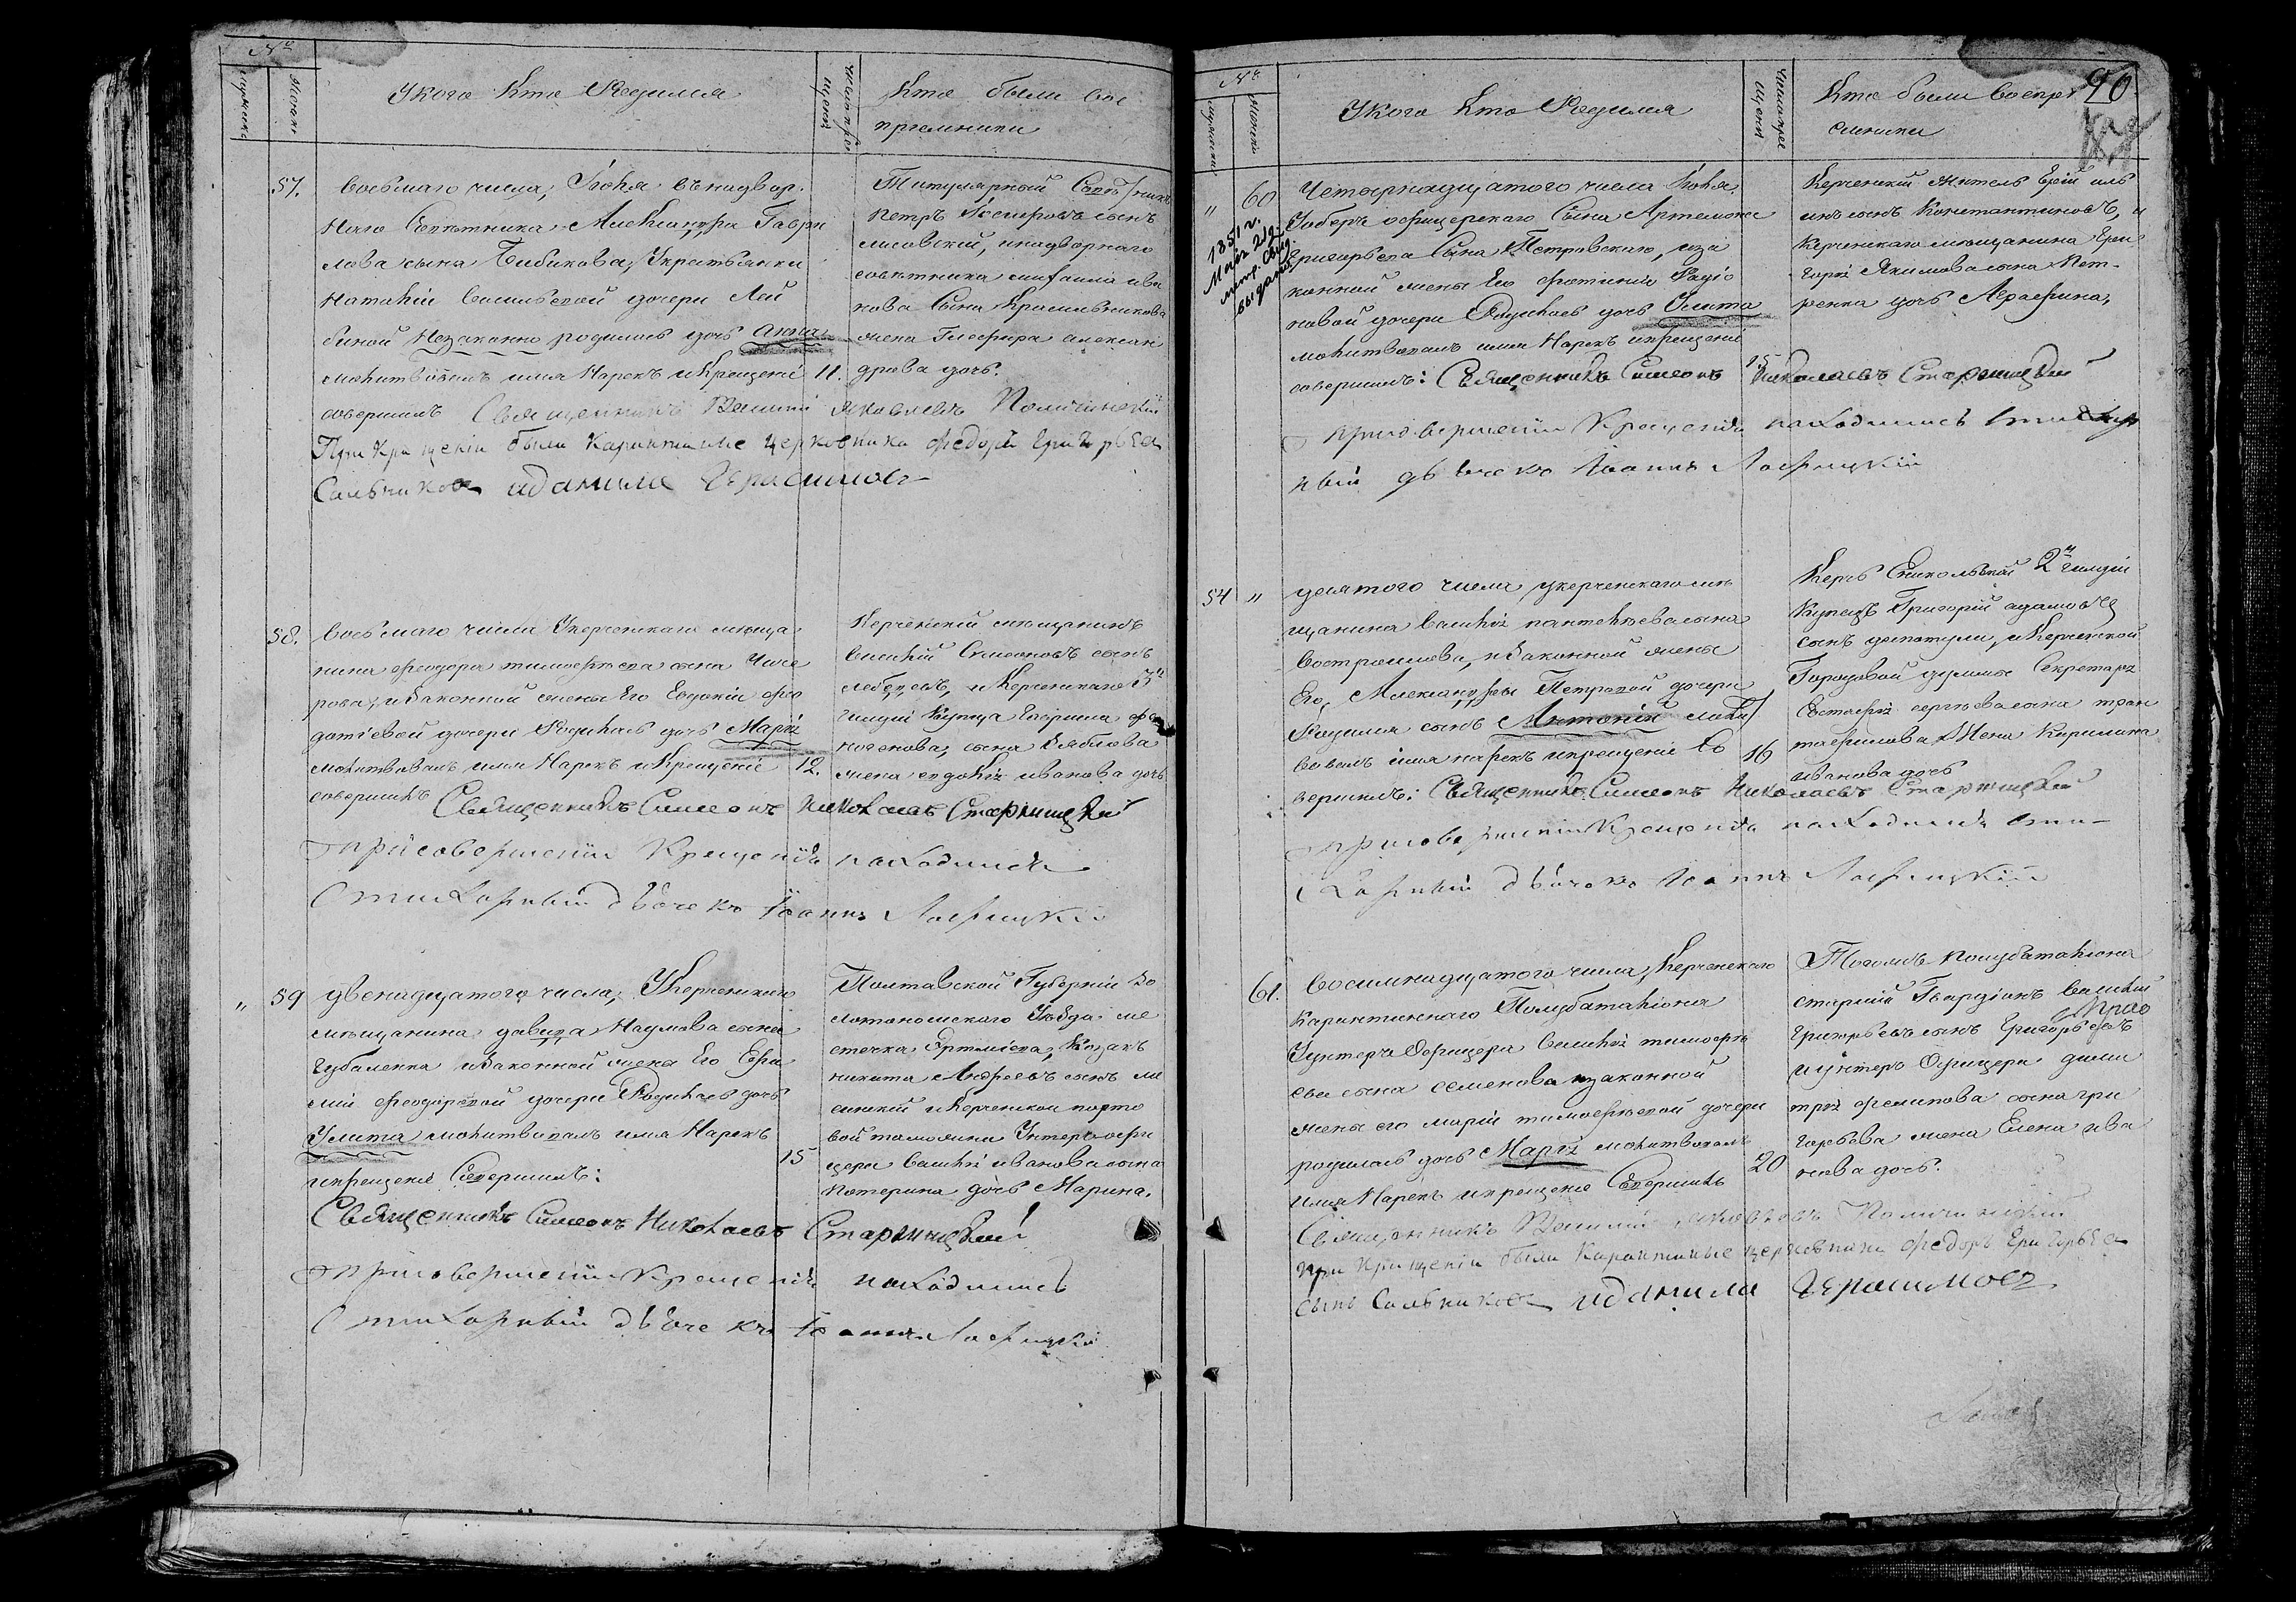 №
Мужеска
Женск
У кого Кто Родился
Числа крещений
Кто были вос
приемники
57.
Восьмаго числа, Іюня въ надвор.
Наго Советника Александра Гаври
лова сына Бибикова, Укрестьянки
Наталіи Васильевой дочери Лей
биной Незаконно родилась дочь Анна
молитвовалъ имя Нарекъ и Крещеніе
11.
совершилъ Священникъ Василий Яковлевъ
При Крещеніи были Карантинные церковника Федоръ Григорьев
Сальников и данила Герасимов
Титулярный Советникъ
Петръ Іосифовъ сынъ
Лисовский, и надворнаго
советника михаила ива
нова Сына Красильникова
жена Глафира алексан
дрова дочь.
58.
Восьмаго числа Укерченскаго меща
нина феодора тимофеева сына
рова, и Законной жены Его Евдокіи
дотіевой дочери Родилась дочь Марія
молитвовалъ имя Нарекъ и Крещеніе
12.
совершилъ Священникъ Симеонъ Николаевъ Старицкий
При совершеніи Крещенія находился
Стихарный дьячекъ Іоаннъ
Керченский мещанинъ
василий Симеоновъ сынъ
лебедевъ, и Керченскаго 3й
гилдіи Купца Гаврила
сына Зяблова
жена евдокія иванова дочь
„
59
двенадцатого числа, Укерченскаго
мещанина давида Наумова сына
Губаленка и Законной жены Его Ефи
міи феодоровой дочери Родилась дочь
Улита молитвовалъ имя Нарекъ
15
икрещеніе Совершилъ:
Священникъ Симеонъ Николаевъ Старицкий
При совершеніи Крещенія находился
Стихарный дьячекъ Іоаннъ
Полтавской Губерніи Зо
лотоношскаго Уезда ме
стечка Козакъ
никита Андреевъ сынъ
и Керченской порто
вой таможни Унтеръ офи
цера Василія иванова сына
Катерина дочь Марина.
№
Мужеска
Женска
У кого Кто Родился
Числа крещений
Кто были воспри
емники
90
„
60
1851 г.
Мая 21 д.
метр. Свид.
выдано
Четырнадцатого числа Іюня,
У оберъ офицерскаго Сына Артемона
Григорьева Сына Петровскаго, иза
конной жены Его фотиніи Радіо
новой дочери Родилась дочь Улита
молитвовалъ имя Нарекъ икрещеніе
15
совершилъ: Священникъ Симеонъ Николаевъ Старицкий
При совершеніи Крещенія находился Стихар
ный дьячекъ Іоаннъ
Керченский житель
сынъ Константиновъ, и
Керченскаго мещанина Гри
горія Якимова сына Пет
ренка дочь Аграфина,
54
„
десятого числа, укерченскаго ме
щанина Василія пантелеева сына
Вострошева, и Законной жены
Его, Александры Петровой дочери
Родился сынъ Антоній молит
вовалъ имя нарекъ икрещеніе Со
16
вершилъ: Священникъ Симеонъ Николаевъ Старицкий
При совершеніи Крещенія находился Сти-
харный дьячекъ Іоаннъ
Керчь Еникольской 2й гилдіи
Купецъ Григорий адамовъ
сынъ и Керченской
Городовой думы Секретаря
Евстафія сергеева сына тран
тафилова Жена Кириакия
иванова дочь
61.
Восимнадцатого числа, Керченскаго
Карантиннаго Полубаталіона
Унтеръ Офицера Василія тимофе
ева сына семенова изаконной
жены его маріи тимофеевой дочери
родилась дочь Марія молитвовалъ
20
имя Нарекъ икрещеніе Совершилъ
Священникъ Василий Яковлевъ
При Крещеніи были Карантинные церковники Федоръ Григорьев
сынъ Сальников и данила Герасимов
Тогожъ полубаталіона
старший Гвардіонъ Василий
Григорьевъ сынъ Григорьевъ
и унтеръ Офицера дими
трія филипова сына гри
горьева жена Елена ива
нова дочь.